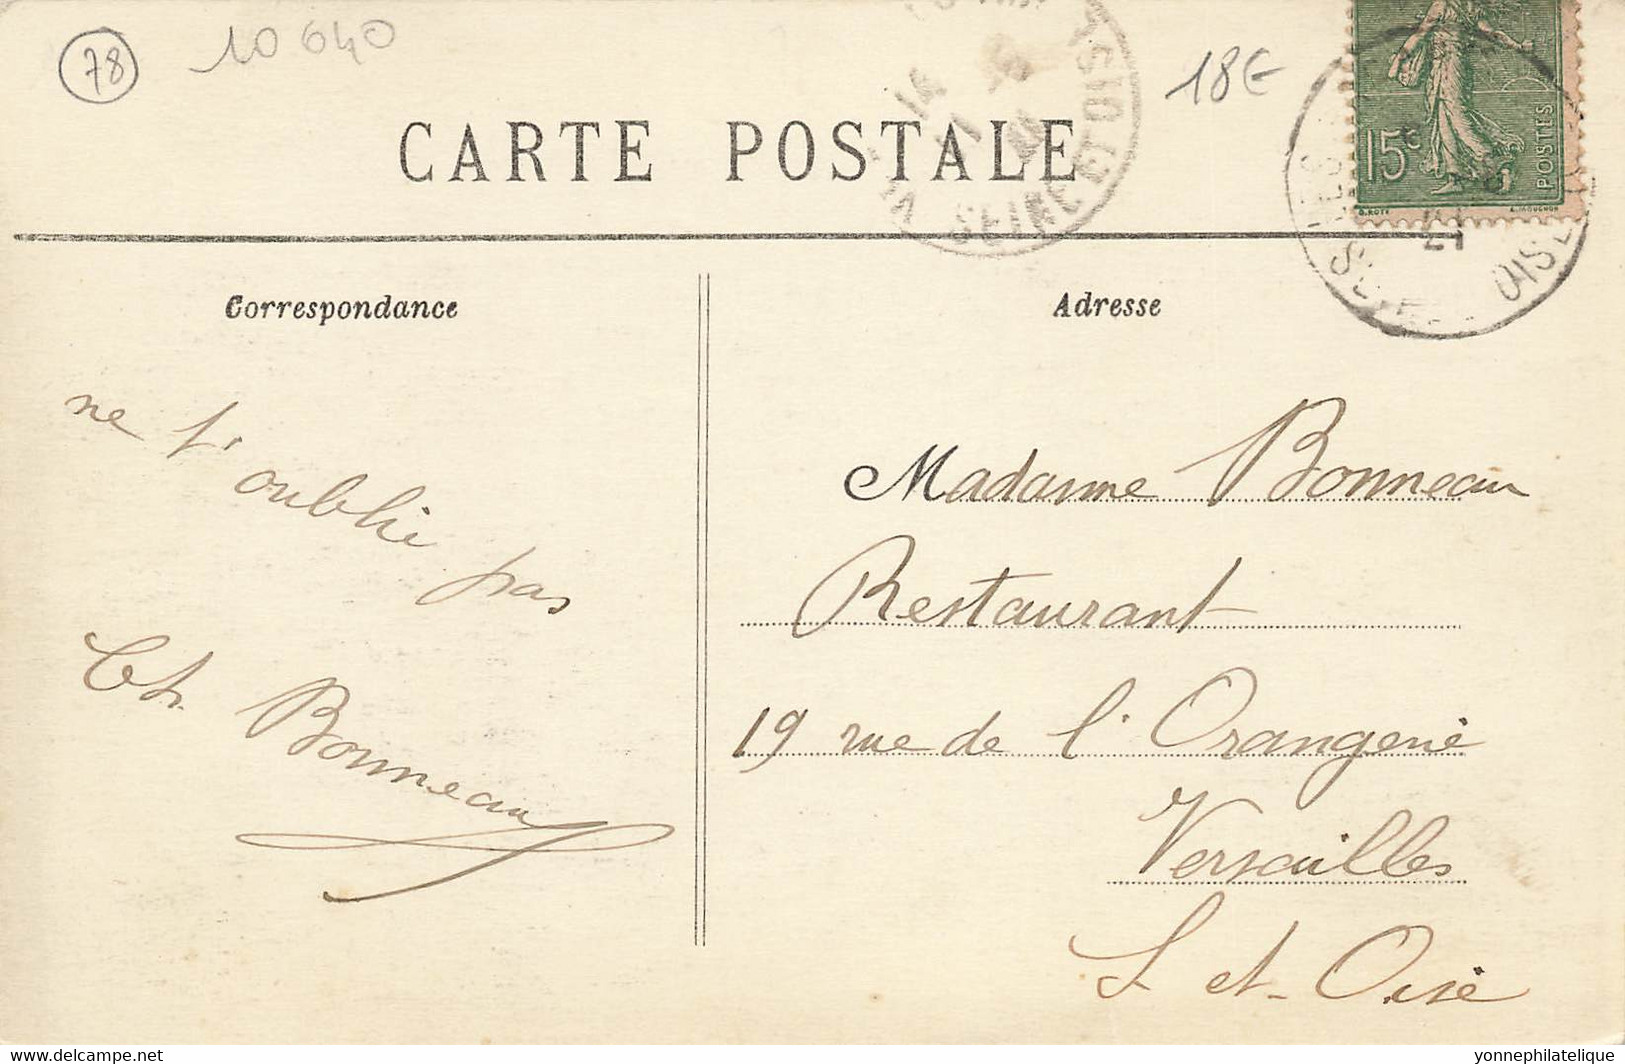 78
10 640
18€
CARTE POSTALE
SEINE ET OISE
15c
POSTES
O. ROTY
L. MOUCHON
21
OISE
Correspondance
Adresse
ne t'oublie pas
Ch. Bonneau
Madame Bonneau
Restaurant
19 rue de l'Orangerie
Versailles
S et-Oise
www.delcampe.net
yonnephilatelique